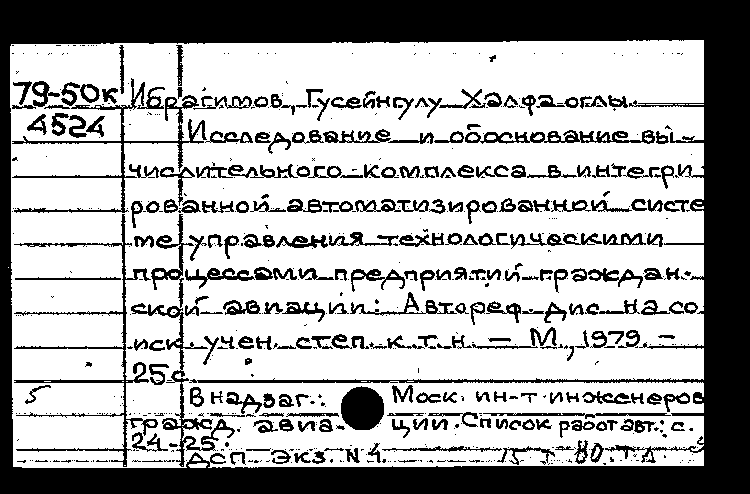 79-50к Ибрагимов, Гусейнгулу Халфа оглы.
4524 Исследование и обоснование вы-
числительного комплекса в интегри
рованной автоматизированной систе
ме управления технологическими
процессами предприятий граждан-
ской авиации: Автореф. дис. на со
иск. учен. степ. к.т.н. — М., 1979. —
25с.
5 В надзаг.: Моск. ин-т инженеров
гражд. авиа- ции. Список работ авт.: с.
24-25.
ДСП экз. N 4.